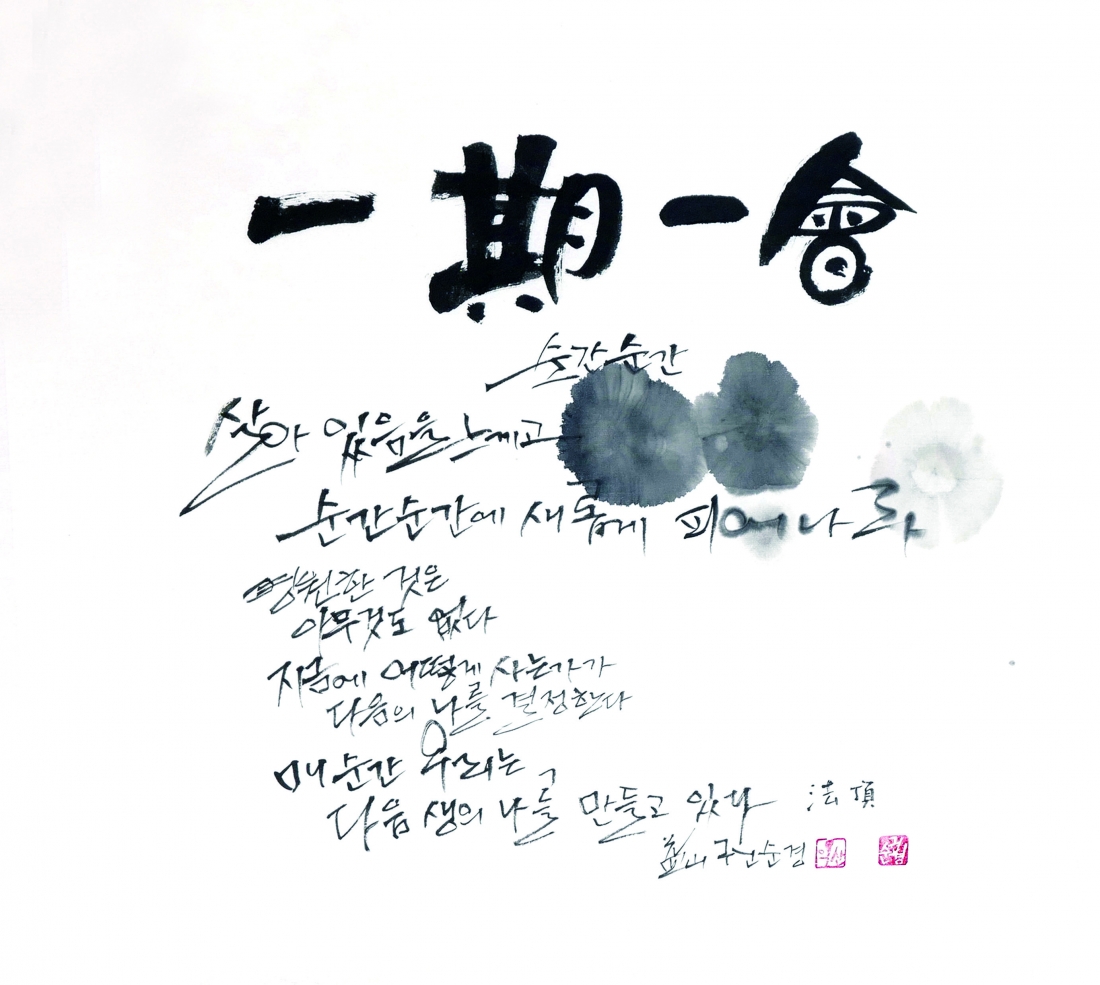 一期一會
순간순간
살아 있음을 느끼고
순간순간에 새롭게 피어나라
영원한 것은
아무것도 없다
지금에 어떻게 사는가가
다음의 나를 결정한다
매 순간 우리는
다음 생의 나를 만들고 있다 法頂
山 순경